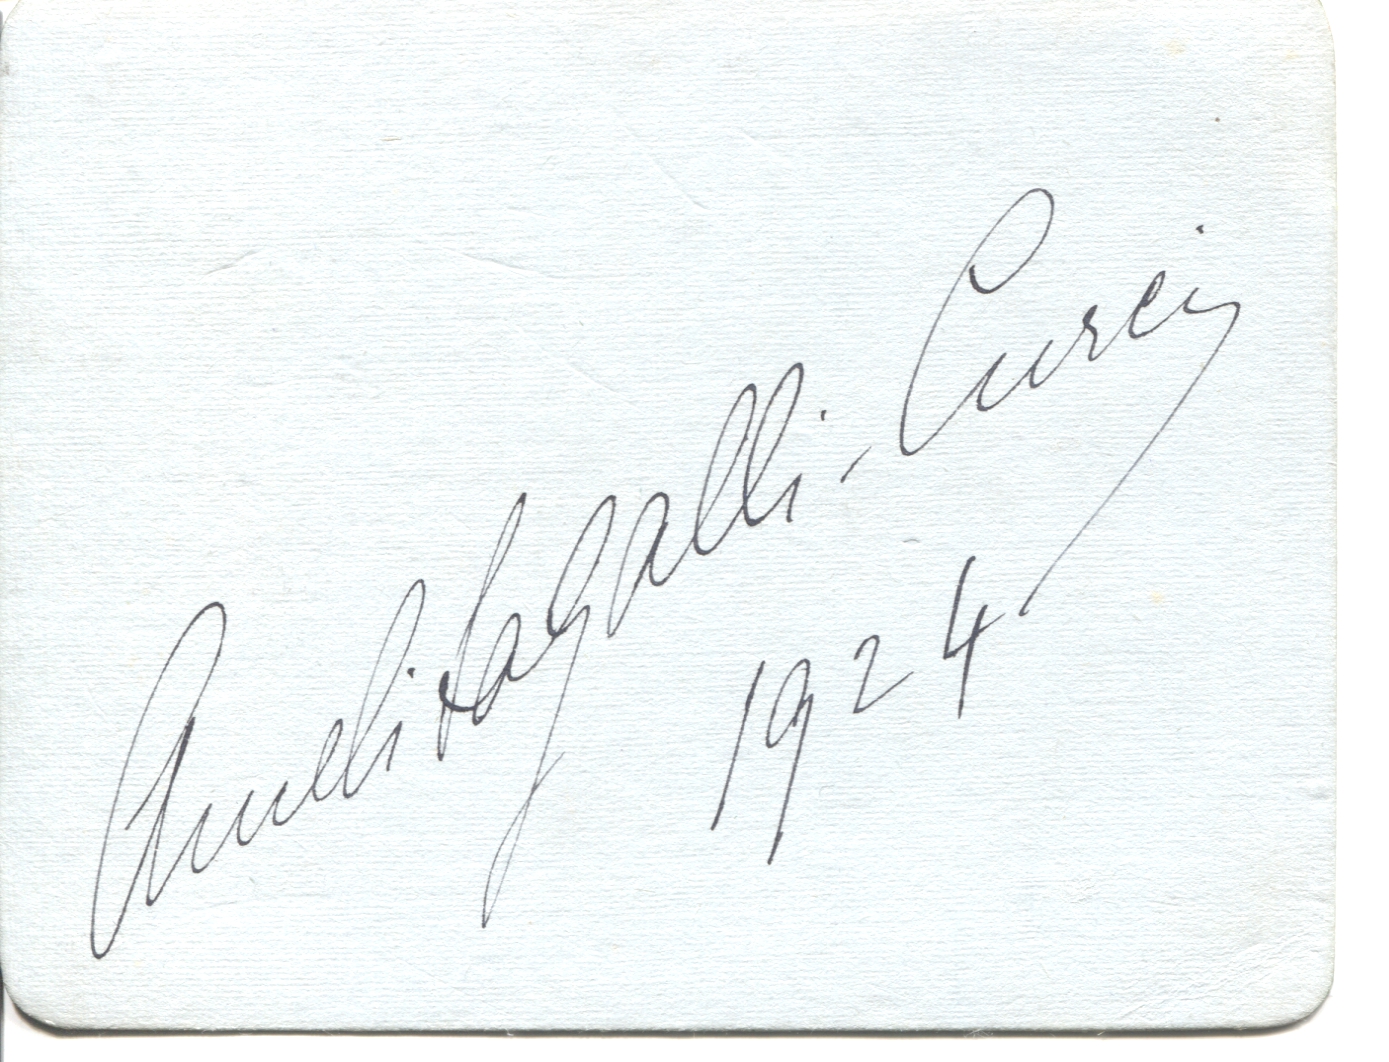 Amelita Galli-Curci
1924